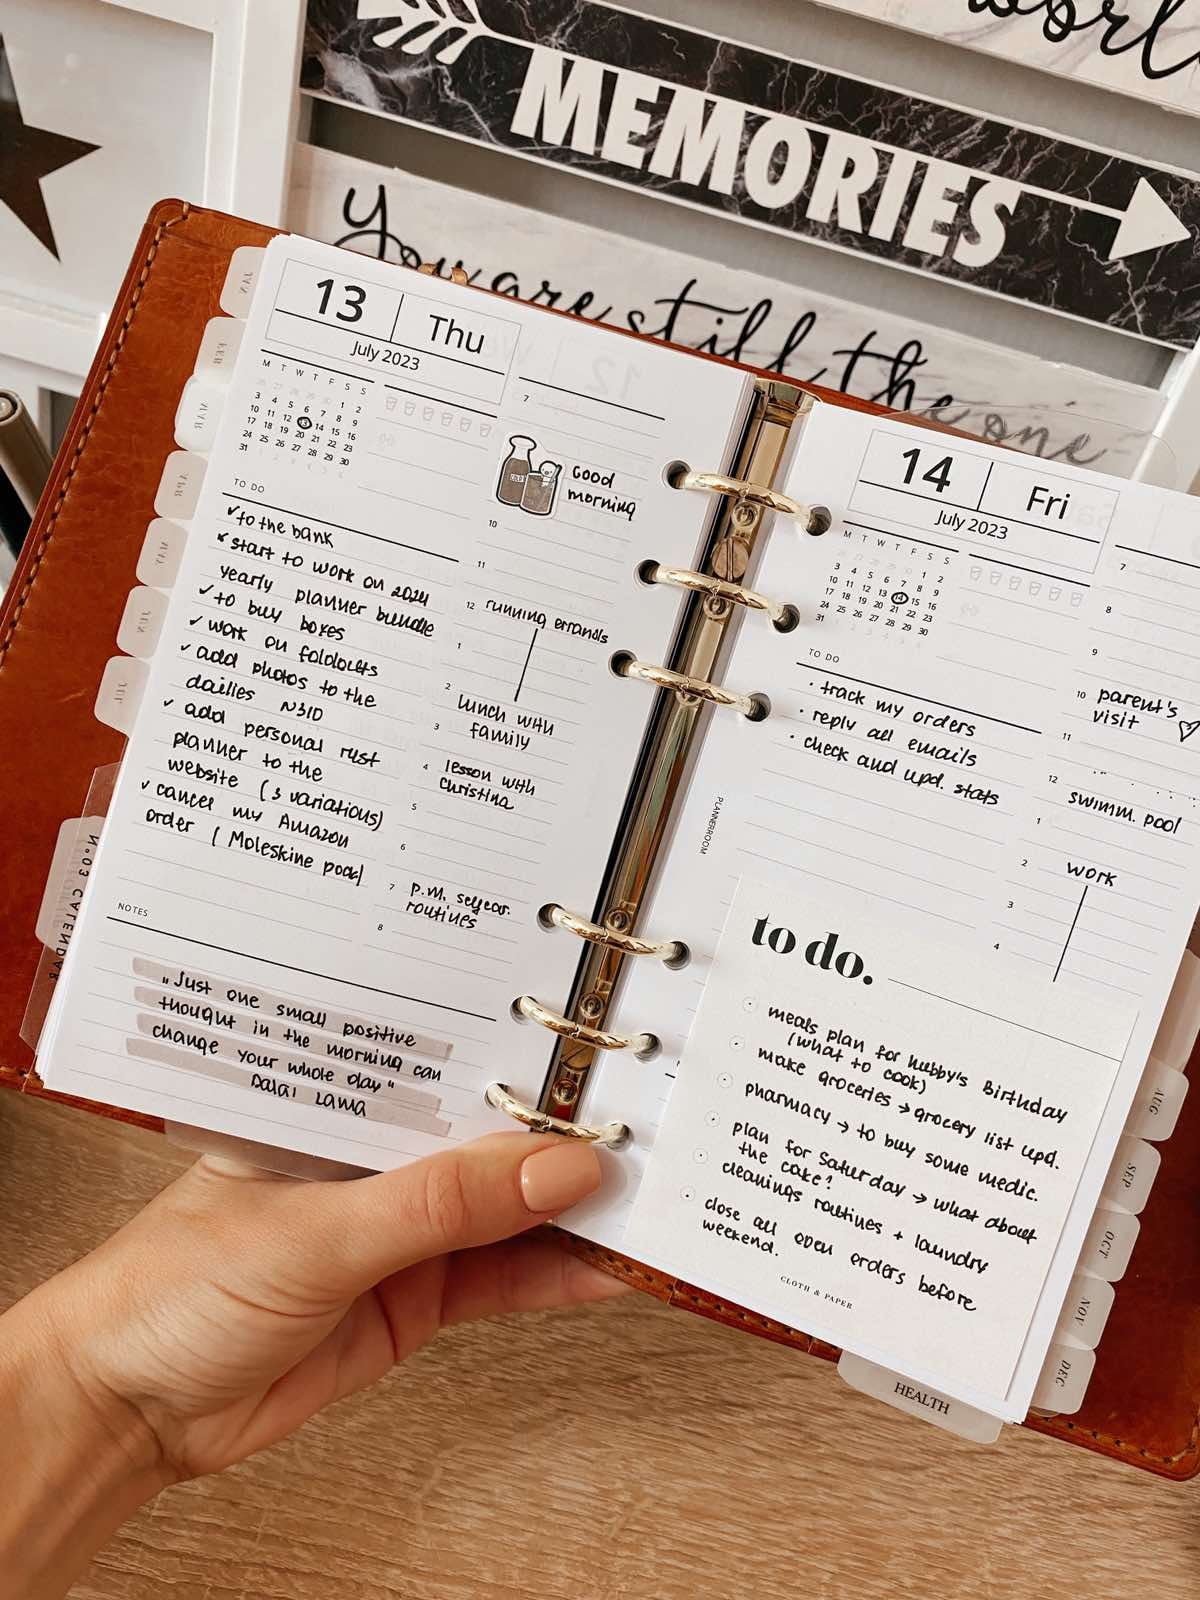 MEMORIES
You are still the one
JAN
FEB
MAR
APR
MAY
JUN
JUL
N°03 CALENDAR
13
Thu
July 2023
M T W T F S S
26 27 28 29 30 1 2
3 4 5 6 7 8 9
10 11 12 13 14 15 16
17 18 19 20 21 22 23
24 25 26 27 28 29 30
31
TO DO
✓to the bank
✓start to work on 2024
yearly planner bundle
✓to buy boxes
✓work on foldouts
✓add photos to the
dailies N31D
✓add personal rust
planner to the
website (3 variations)
✓cancel my Amazon
order ( Moleskine pock)
NOTES
„Just one small positive
thought in the morning can
change your whole day"
Dalai Lama
7
Good
morning
10
11
12 running errands
1
2 lunch with
3 family
4 lesson with
Christina
5
6
7 P.M.
routines
8
14
Fri
July 2023
M T W T F S S
1 2
3 4 5 6 7 8 9
10 11 12 13 14 15 16
17 18 19 20 21 22 23
24 25 26 27 28 29 30
31
TO DO
· track my orders
· reply all emails
· check and upd. stats
PLANNERROOM
7
8
9
10 parent's
visit
11
12
swimm. pool
1
2 work
3
4
to do.
meals plan for hubby's Birthday
(what to cook)
make groceries → grocery list upd.
pharmacy → to buy some medic.
plan for Saturday → what about
the cake?
cleanings routines + laundry
close all open orders before
weekend.
CLOTH & PAPER
AUG
SEP
OCT
NOV
DEC
HEALTH